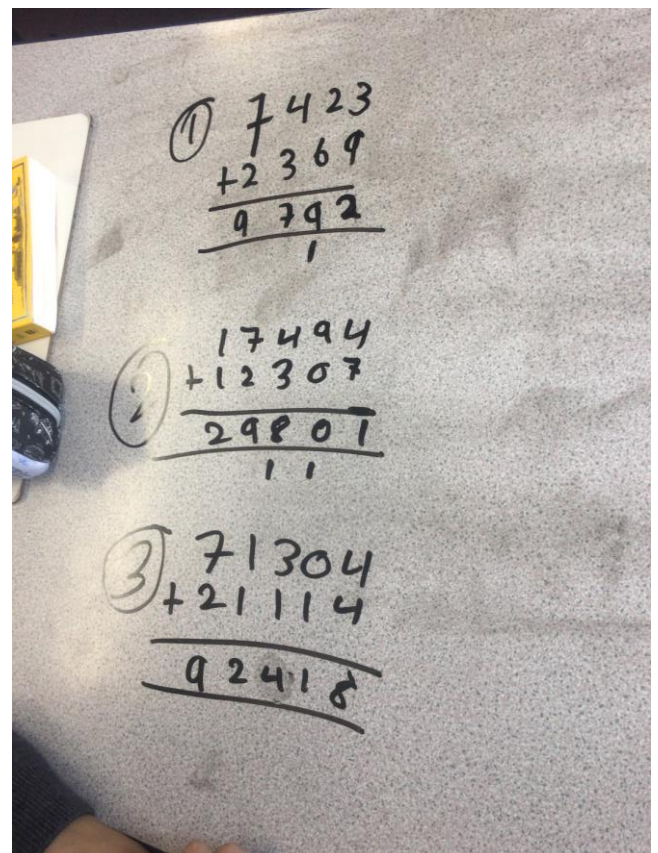 ① 7423
+2369
9792
1
② 17494
+12307
29801
11
③ 71304
+21114
92418